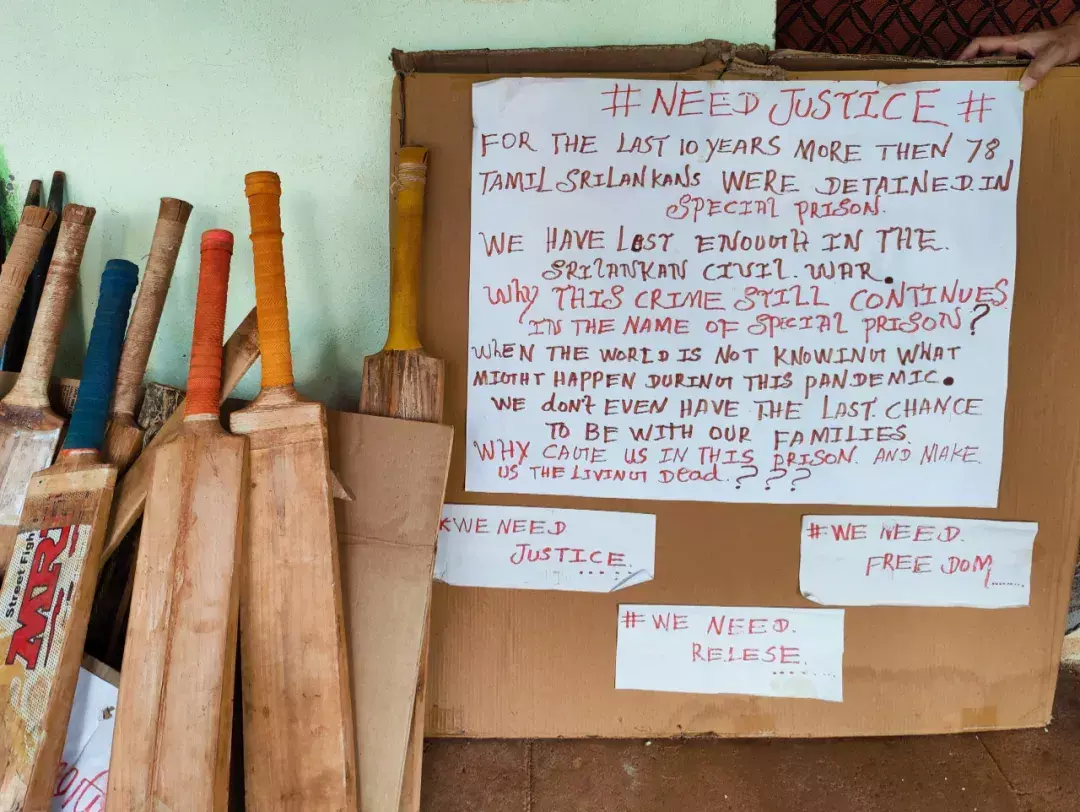 # NEED JUSTICE #
FOR THE LAST 10 YEARS MORE THEN 78
TAMIL SRILANKANS WERE DETAINED.IN
SPECIAL PRISON.
WE HAVE LOST ENOUGH IN THE.
SRILANKAN CIVIL.WAR.
WHY THIS CRIME STILL CONTINUES
IN THE NAME OF SPECIAL PRISON?
WHEN THE WORLD IS NOT KNOWING WHAT
MIGHT HAPPEN DURING THIS PANDEMIC.
WE dON'T EVEN HAVE THE LAST CHANCE
TO BE WITH OUR FAMILIES.
WHY CAGE US IN THIS PRISON. AND MAKE.
US THE LIVING DEad.???
WE NEED
JUSTICE......
#WE NEED.
FREEDOM......
#WE NEED.
RELESE......
Street Figh
MRF